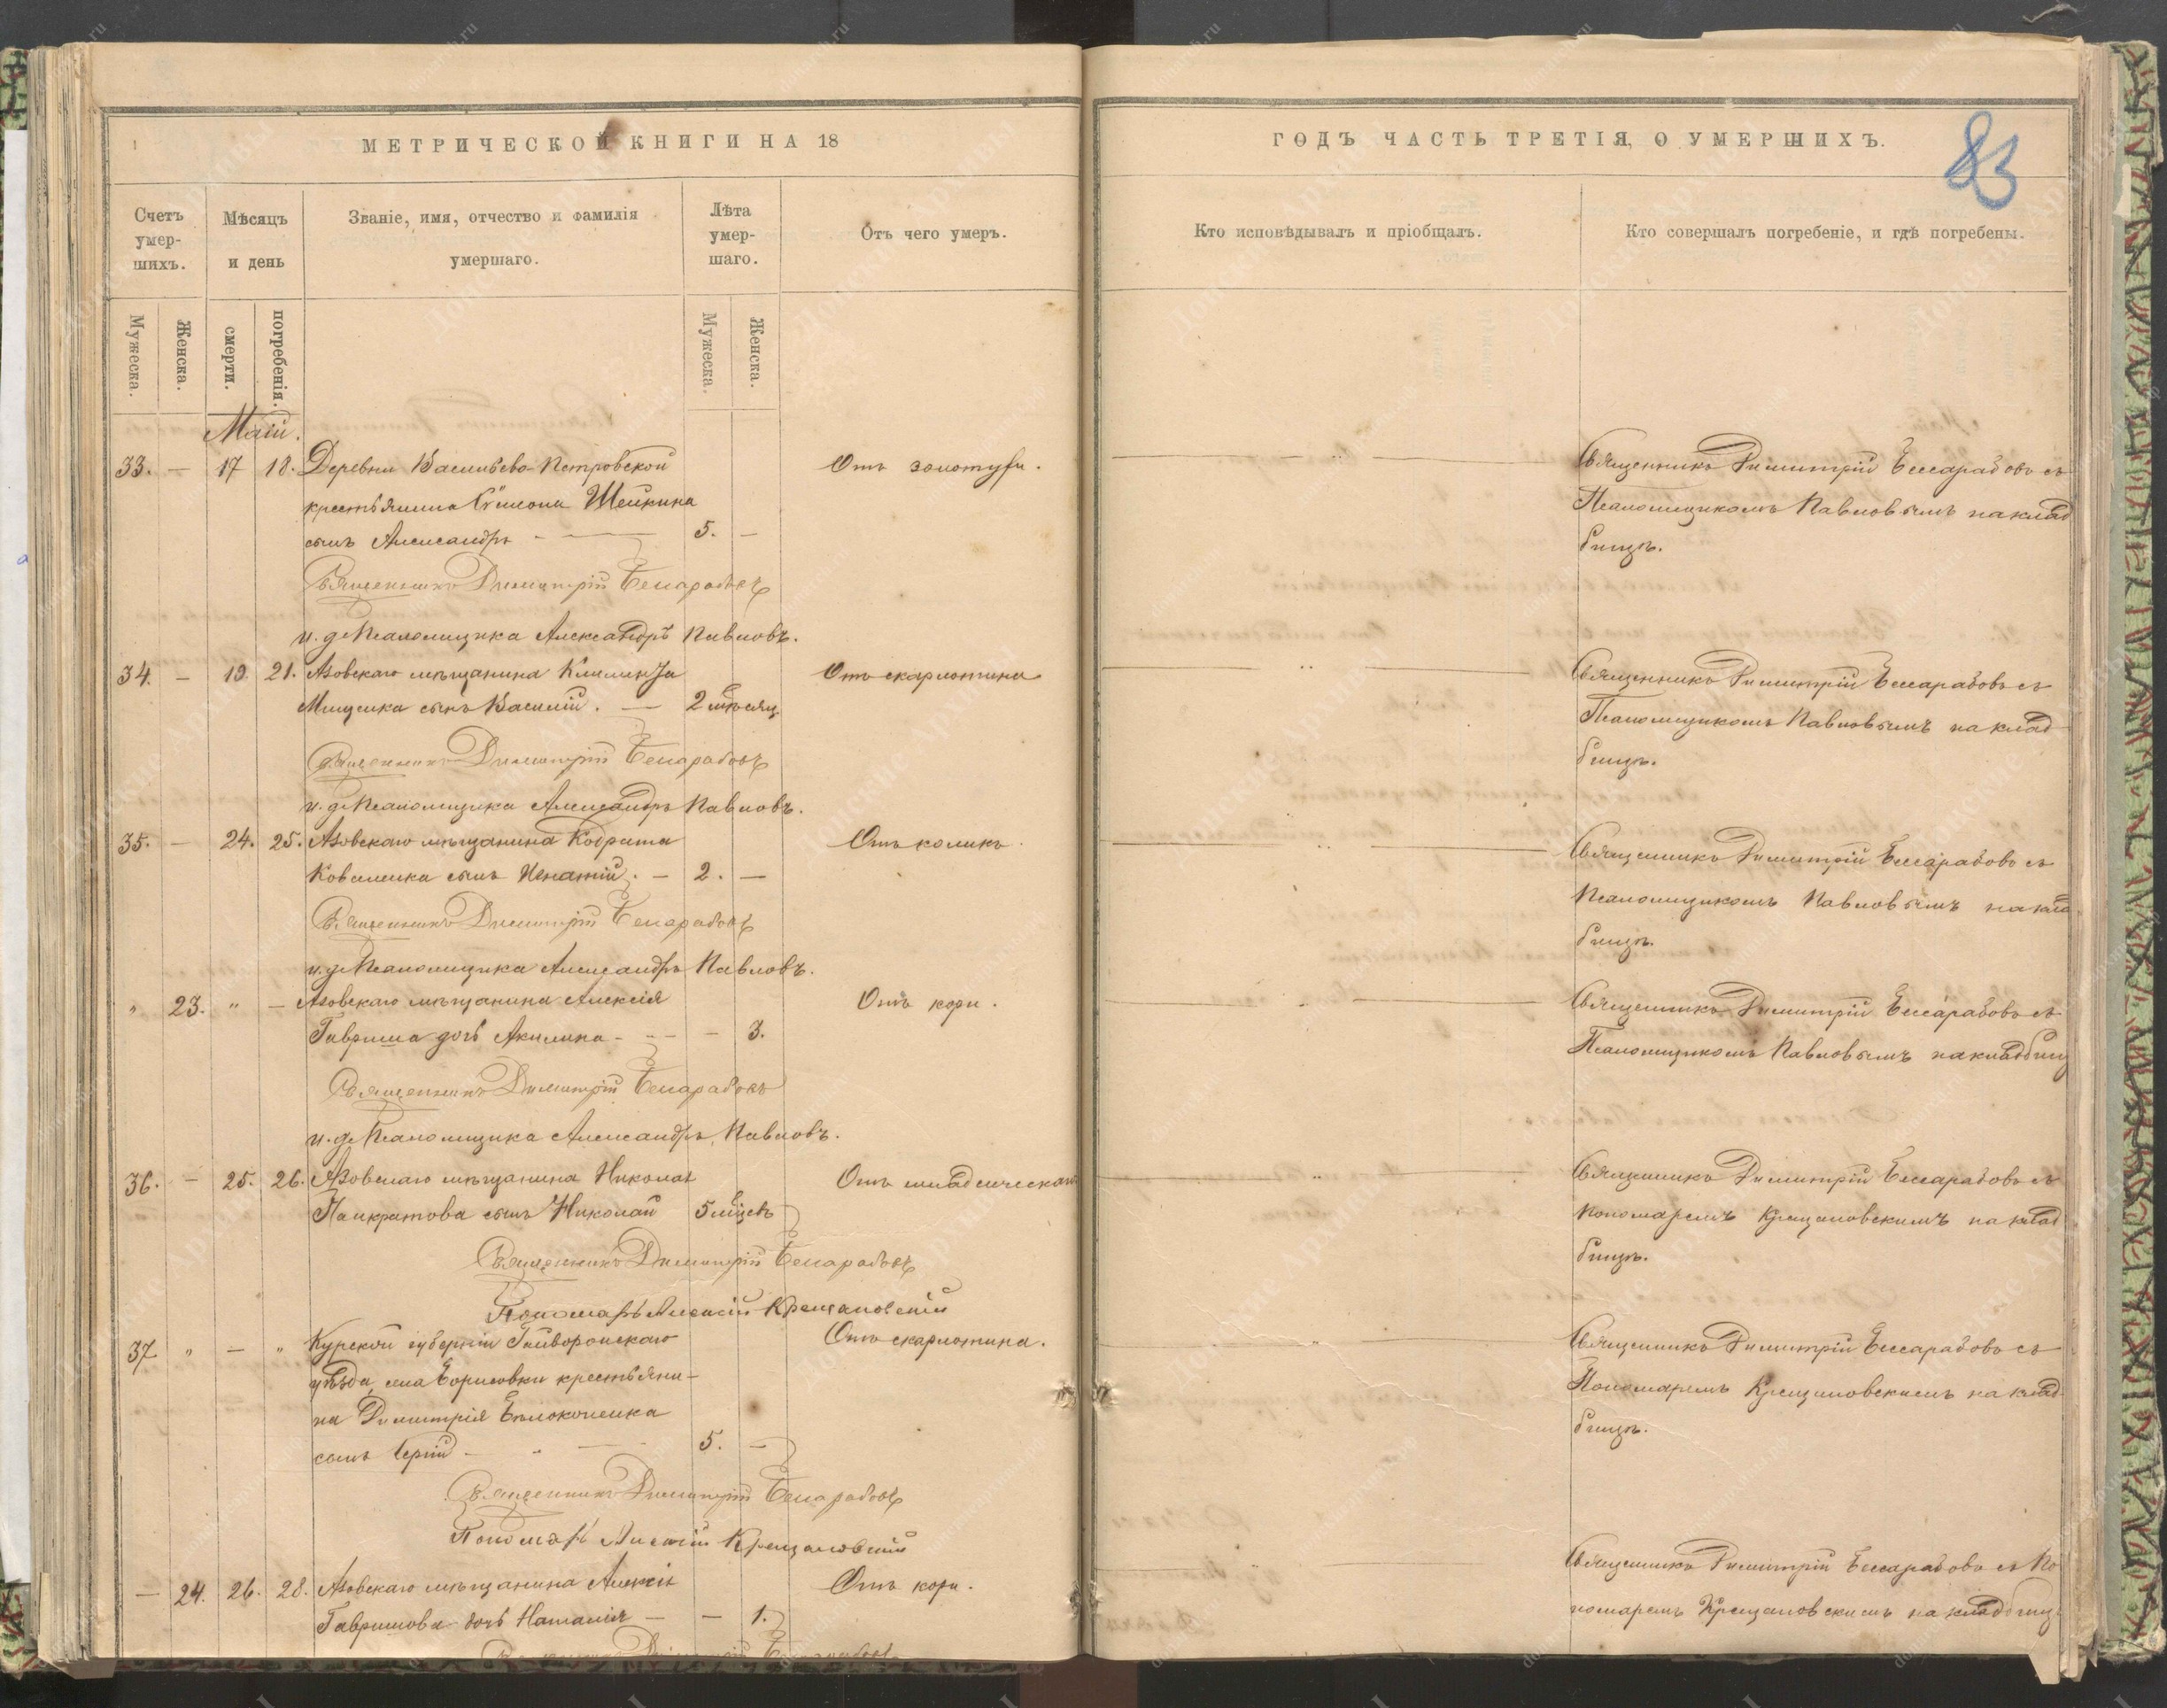 МЕТРИЧЕСКОЙ КНИГИ НА 18
ГОДЪ ЧАСТЬ ТРЕТІЯ, О УМЕРШИХЪ.
83
Счетъ умер-шихъ.
Мѣсяцъ и день
Званіе, имя, отчество и фамилія умершаго.
Лѣта умер-шаго.
Отъ чего умеръ.
Кто исповѣдывалъ и пріобщалъ.
Кто совершалъ погребеніе, и гдѣ погребены.
Мужеска.
Женска.
смерти.
погребенія.
Мужеска.
Женска.
Маій.
33. — 17 18. Деревни Васильево-Петровской
Отъ золотухи.
крестьянина Симона Шейкина
сынъ Александръ 5. —
Священникъ Димитрій Бессарабовъ съ
Псаломщикомъ Павловымъ на клад
бищѣ.
Священникъ Димитрій Бессарабовъ
и. д. Псаломщика Александръ Павловъ.
34. — 19. 21. Азовскаго мѣщанина Климента
Отъ скарлотина
Мищенка сынъ Василій. — 2 мѣсяц.
Священникъ Димитрій Бессарабовъ съ
Псаломщикомъ Павловымъ на клад
бищѣ.
Священникъ Димитрій Бессарабовъ
и. д. Псаломщика Александръ Павловъ.
35. — 24. 25. Азовскаго мѣщанина Кодрата
Отъ коликъ.
Коваленка сынъ Игнатій. — 2. —
Священникъ Димитрій Бессарабовъ съ
Псаломщикомъ Павловымъ на кла
бищѣ.
Священникъ Димитрій Бессарабовъ
и. д. Псаломщика Александръ Павловъ.
" 23. " — Азовскаго мѣщанина Алексія
Отъ кори.
Гавриша дочь Акилина - - 3.
Священникъ Димитрій Бессарабовъ съ
Псаломщикомъ Павловымъ на кладбищ
Священникъ Димитрій Бессарабовъ
и. д. Псаломщика Александръ Павловъ.
36. — 25. 26. Азовскаго мѣщанина Николая
Отъ младенческаго
Панкратова сынъ Николай 5 мѣцев
Священникъ Димитрій Бессарабовъ съ
Пономаремъ Крещановскимъ на клад
бищѣ.
Священникъ Димитрій Бессарабовъ
Пономарь Алексій Крещановскій
37 " — " Курской губерніи Гайворонскаго
Отъ скарлотина.
уѣзда, села Борисовки крестьяни-
на Димитрія Бѣлоконенка
сынъ Сергій 5. —
Священникъ Димитрій Бессарабовъ съ
Пономаремъ Крещановскимъ на клад
бищѣ.
Священникъ Димитрій Бессарабовъ
Пономарь Алексій Крещановскій
— 24. 26. 28. Азовскаго мѣщанина Алексія
Отъ кори.
Гавришова дочь Наталія — — 1.
Священникъ Димитрій Бессарабовъ съ По
номаремъ Крещановскимъ на кладбищ
Священникъ Димитрій Бессарабовъ